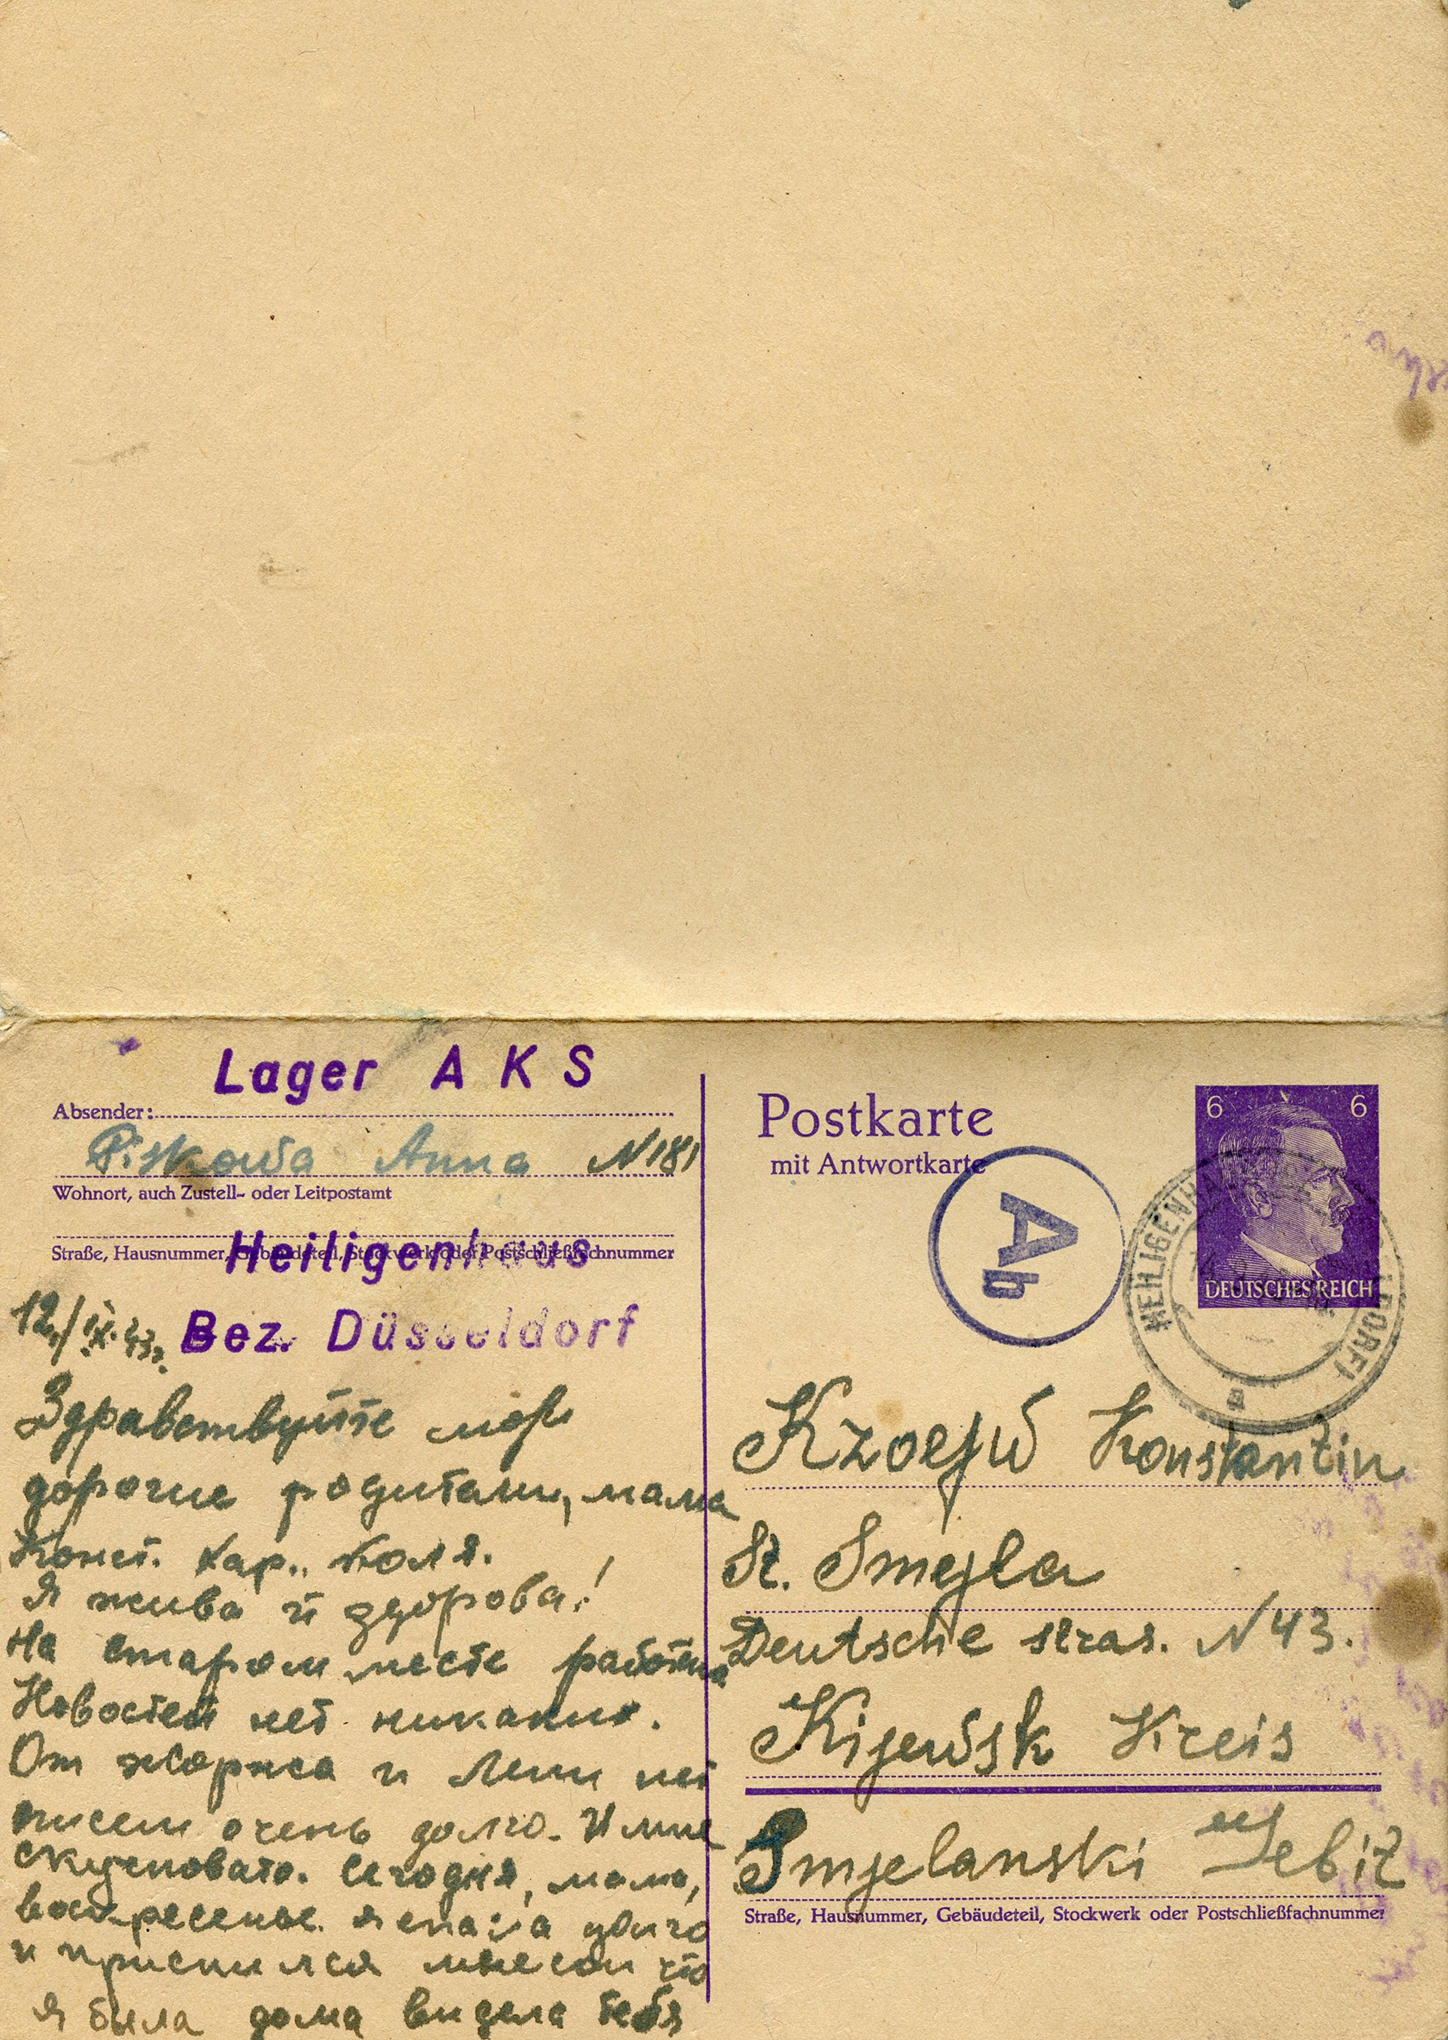 Lager A K S
Absender:
Piskowa Anna N181
Wohnort, auch Zustell- oder Leitpostamt
Heiligenhaus
Straße, Hausnummer, Gebäudeteil, Stockwerk oder Postschließfachnummer
Bez. Düsseldorf
12/IX.43г.
Здравствуйте мои
дорогие родители, мама
Конст. Хар., Коля.
Я жива и здорова!
На старом месте работаю
Новостей нет никаких.
От Жоржа и Лени нет
писем очень долго. И мне
скучновато. Сегодня, мама,
воскресенье. Я спала долго
и приснился мне сон что
я была дома видела тебя
Postkarte
mit Antwortkarte
6 6
DEUTSCHES REICH
Ab
HEILIGENHAUS
a
Konstantin
St. Smejla
Deutsche stras. N 43.
Kijewsk Kreis
Smjelanski Gebit
Straße, Hausnummer, Gebäudeteil, Stockwerk oder Postschließfachnummer